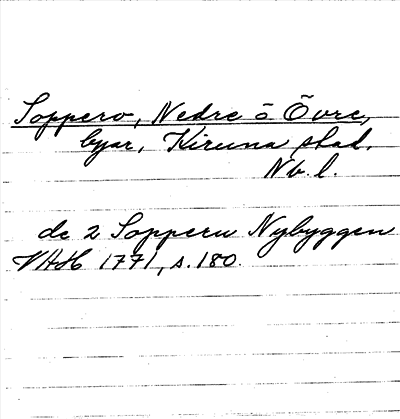 Soppero, Nedre o Övre,
byar, Kiruna stad.
Nb. l.
de 2 Sopperu Nybyggen
VAH 1771, s. 180.